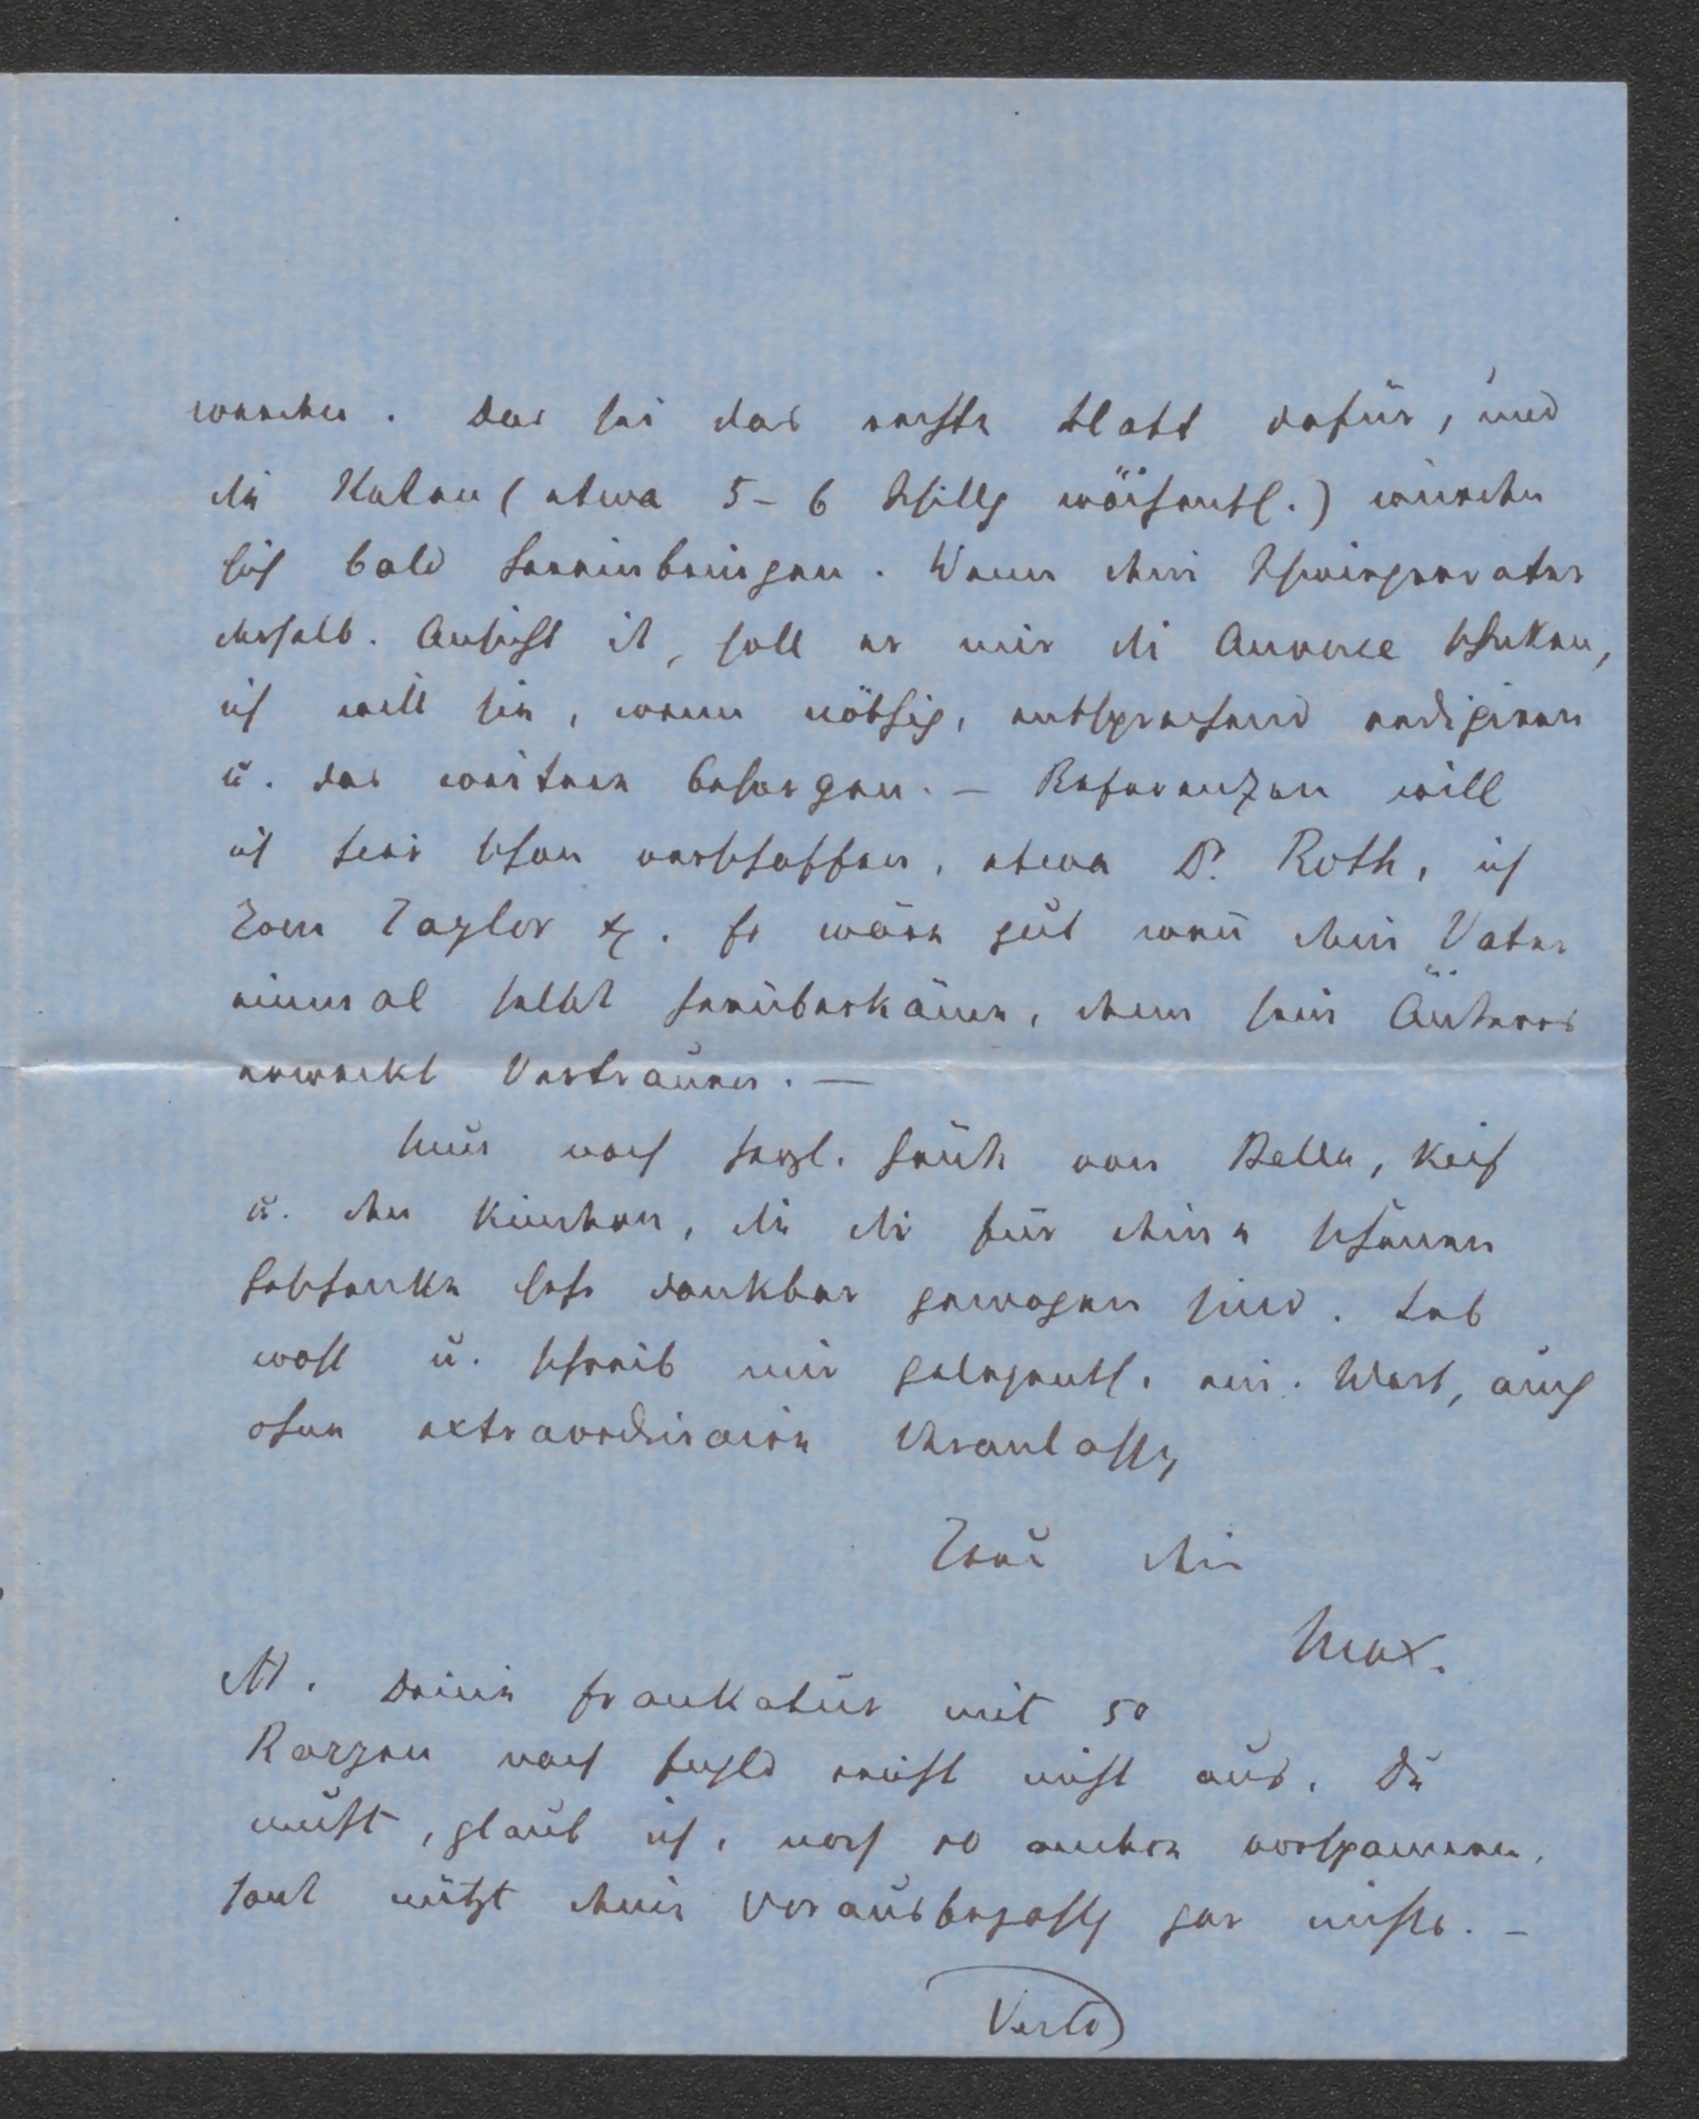 werden. Das sei das erste Blatt dafür, und
die Kosten (etwa 5–6 Schillg wöchentl.) würden
sich bald hereinbringen. Wenn dein Schwiegervater
derselb. Ansicht ist, soll er mir die Annonce schicken,
ich will sie, wenn nöthig, entsprechend redigiren
u. das weitere besorgen. – Referenzen will
ich hier schon verschaffen, etwa Dr. Roth, ich
Tom Taylor &. Es wäre gut wen̄ dein Vater
einmal selbst herüberkäme, denn sein Äußeres
erweckt Vertrauen. –
Nun noch herzl. Grüße von Bella, Käth
u. den Kindern, die dir für deine schönen
Geschenke sehr dankbar gewogen sind. Leb
wohl u. schreib mir gelegentl. ein. Wort, auch
ohne extraordinaire Veranlassg,
Treu dein
Max.
NB. Deine Frankatur mit 50
Rappen nach Engld reicht nicht aus. Du
mußt, glaub ich, noch 10 andere vorspannen,
sonst nützt deine Vorausbezahlg gar nichts. –